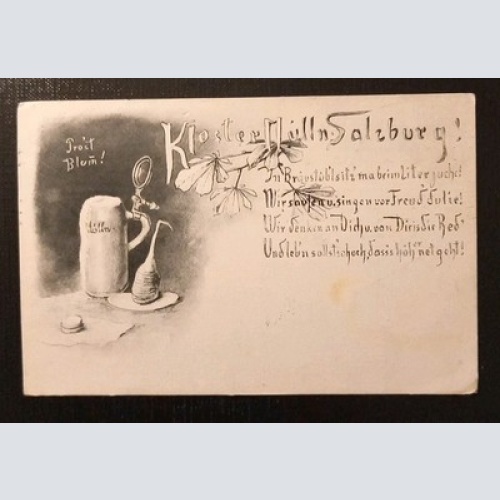 Prost
Blum!
Kloster Mülln-Salzburg!
In Bräustübl sitz' ma beim Liter juche!
Wir saufen u. singen vor Freud
Wir denken an Dich u. von Dir is die Red'
Und leb'n sollst hoch, das's höh'r net geht!